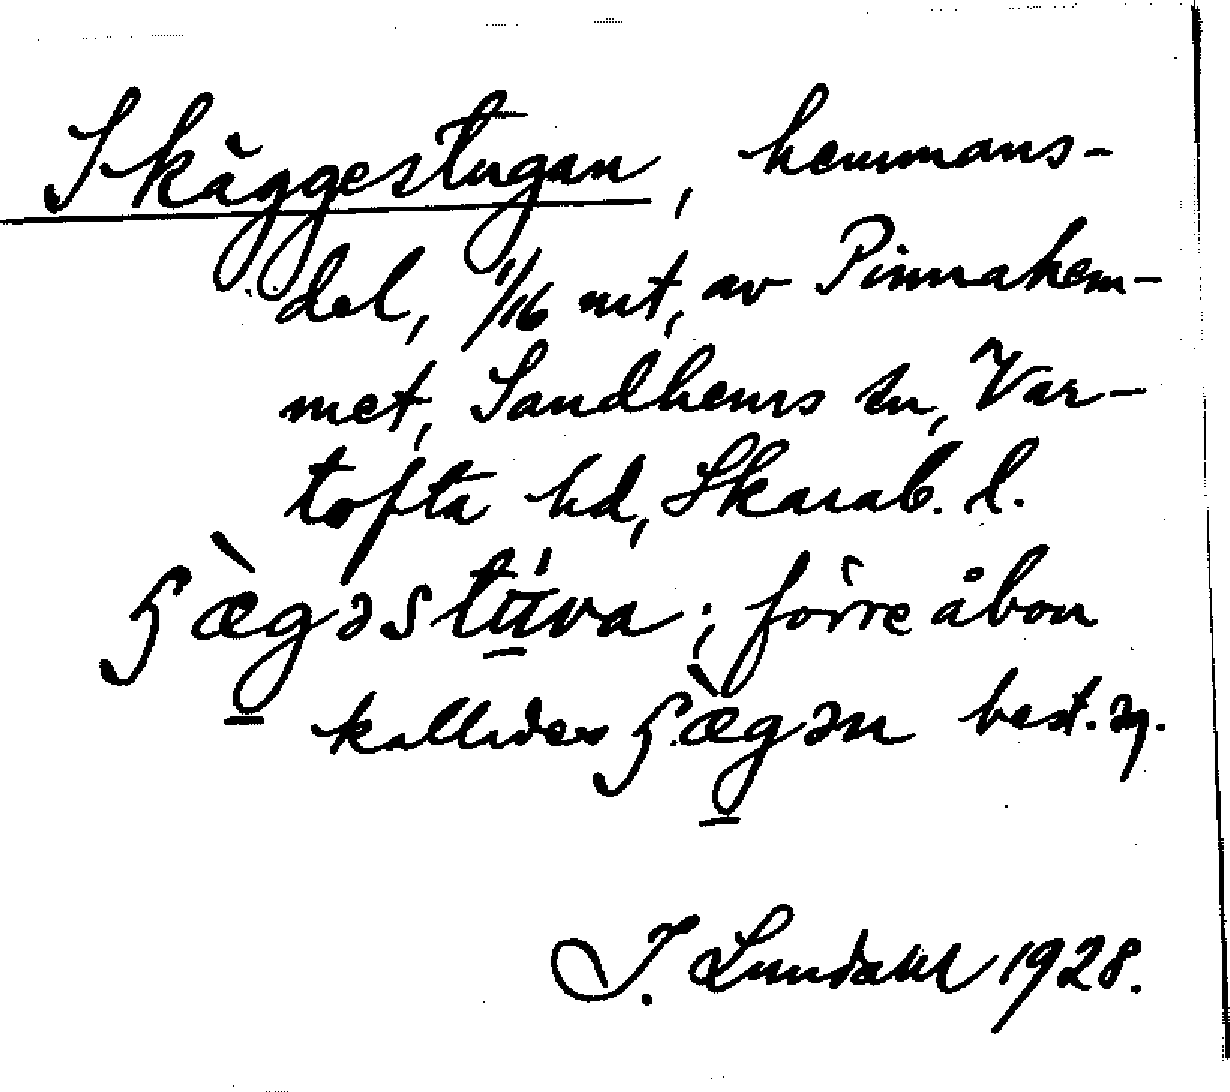 Skäggestugan, hemmans-
del, 1/16 mt, av Pinnahem-
met, Sandhems sn, Var-
tofta hd, Skarab. l.
förre åbon
kallades best. sg.
J. Lundahl 1928.